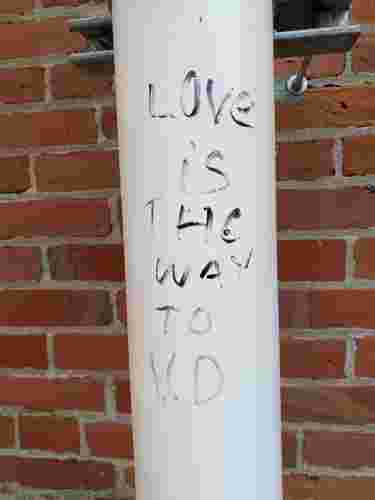 LOVe
iS
THe
WAY
TO
V.D